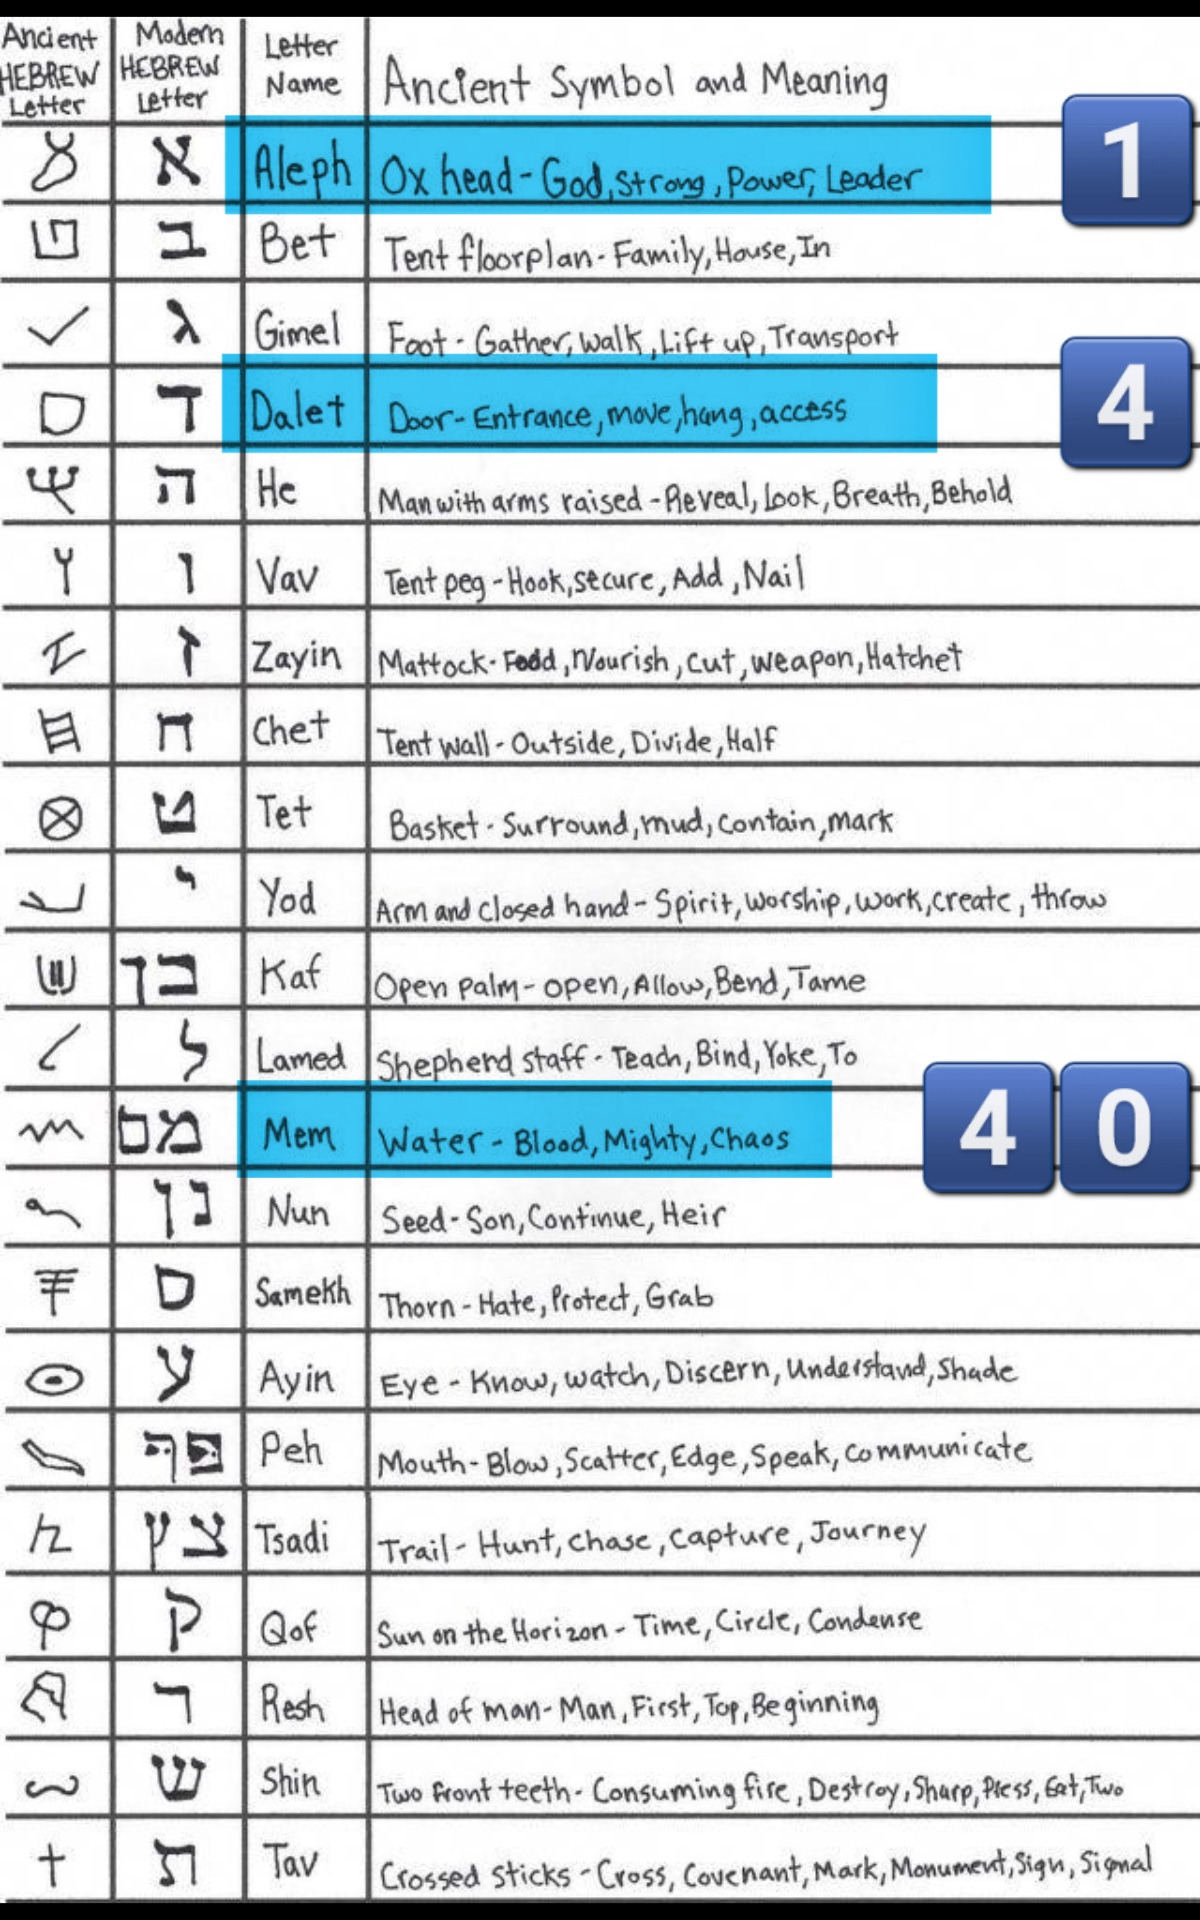 Ancient HEBREW Letter Modern HEBREW Letter Letter Name Ancient Symbol and Meaning
א Aleph Ox head - God, strong, Power, Leader 1
ב Bet Tent floorplan - Family, House, In
ג Gimel Foot - Gather, walk, Lift up, Transport
ד Dalet Door - Entrance, move, hang, access 4
ה He Man with arms raised - Reveal, Look, Breath, Behold
ו Vav Tent peg - Hook, secure, Add, Nail
ז Zayin Mattock - Food, Nourish, cut, weapon, Hatchet
ח Chet Tent wall - Outside, Divide, Half
ט Tet Basket - Surround, mud, contain, mark
י Yod Arm and closed hand - Spirit, worship, work, create, throw
כ ך Kaf Open palm - open, Allow, Bend, Tame
ל Lamed Shepherd staff - Teach, Bind, Yoke, To
מ ם Mem Water - Blood, Mighty, Chaos 40
נ ן Nun Seed - Son, Continue, Heir
ס Samekh Thorn - Hate, Protect, Grab
ע Ayin Eye - Know, watch, Discern, Understand, Shade
פ ף Peh Mouth - Blow, Scatter, Edge, Speak, communicate
צ ץ Tsadi Trail - Hunt, chase, capture, Journey
ק Qof Sun on the Horizon - Time, Circle, Condense
ר Resh Head of man - Man, First, Top, Beginning
ש Shin Two front teeth - Consuming fire, Destroy, Sharp, Press, Eat, Two
ת Tav Crossed sticks - Cross, Covenant, Mark, Monument, Sign, Signal